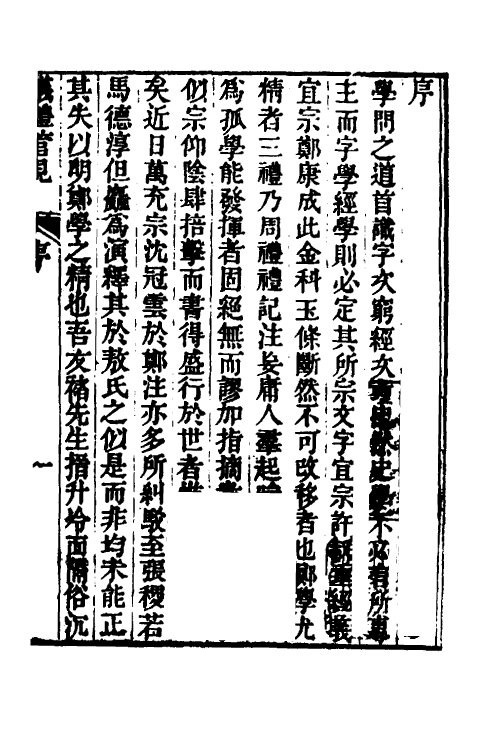 序
學問之道首識字次窮經次然史學不必有所專
主而字學經學則必定其所宗文字宜宗許經義
宜宗鄭康成此金科玉條斷然不可改移者也鄭學尤
精者三禮乃周禮禮記注妄庸人羣起
爲孤學能發揮者固絕無而謬加指摘
似宗仰陰肆掊擊而書得盛行於世者
矣近日萬充宗沈冠雲於鄭注亦多所糾駁至張稷若
馬德淳但麤爲演釋其於敖氏之似是而非均未能正
其失以明鄭學之精也吾友褚先生搢升冷面隔俗沉
儀禮管見
序
一